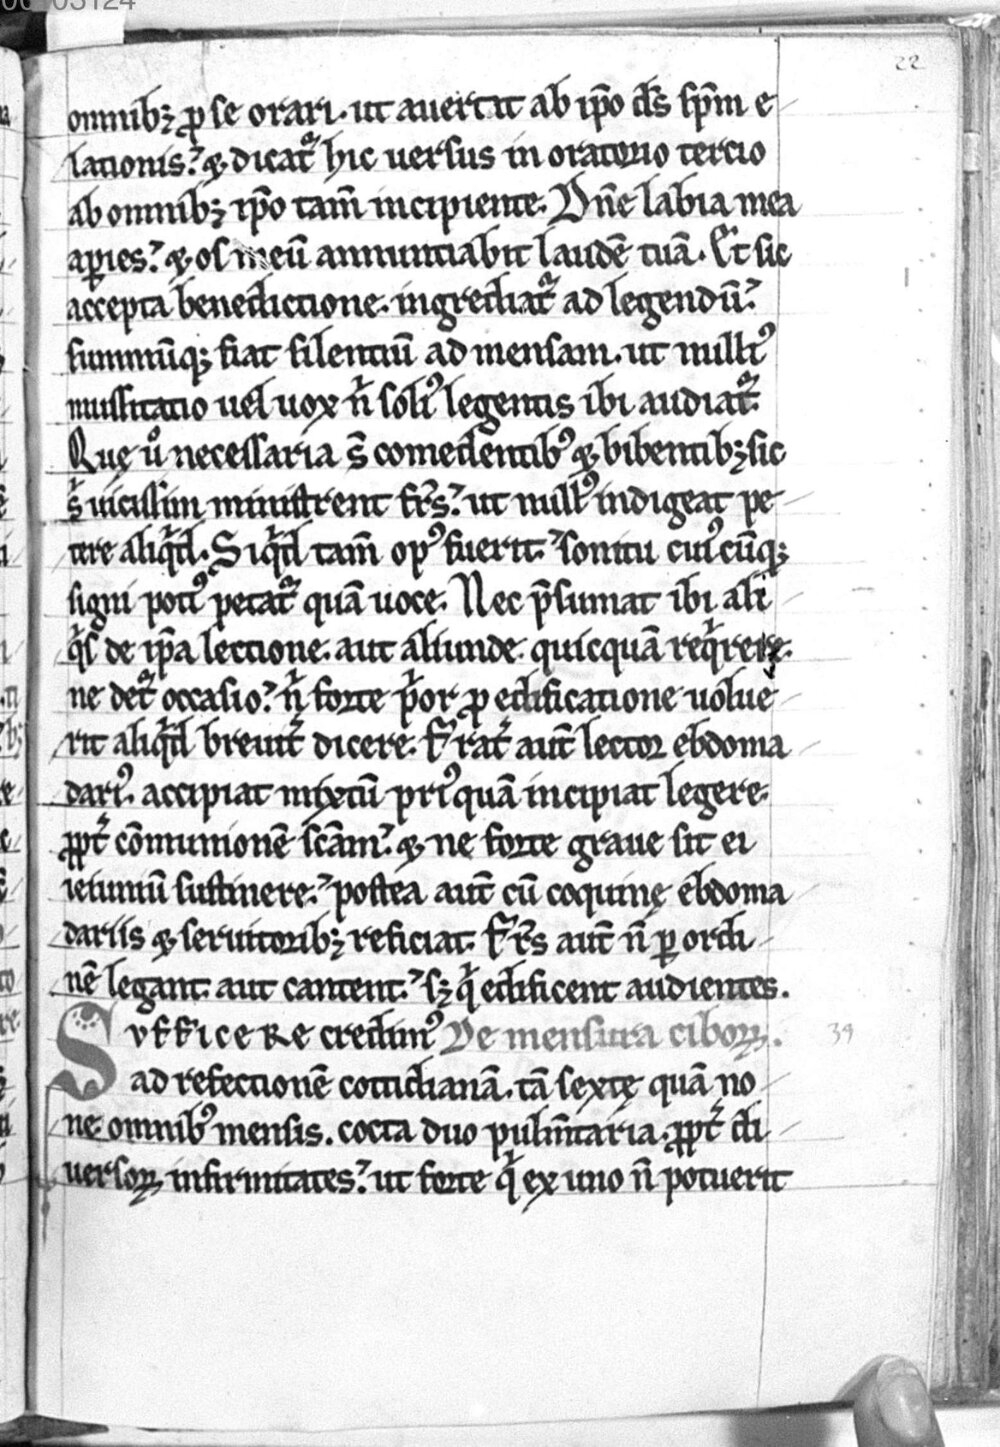 00003124
22
omnibꝫ ꝓ se orari. ut auertat ab ip̄o d̄s sp̄m e
lationis. ⁊ dicat᷑ hic uersus in oratorio tercio
ab omnibꝫ ip̄o tam̄ incipiente. Dn̄e labia mea
aꝑies. ⁊ os meū annuntiabit laudē tuā. Et sic
accepta benedictione. ingrediat᷑ ad legendū.
summūqꝫ fiat silentiū ad mensam. ut nulliꝰ
mussitatio uel uox n̄ soliꝰ legentis ibi audiat᷑.
Quę uͦ necessaria s̄ comedentibꝰ ⁊ bibentibꝫ sic
s̄ uicissim ministrent fr̄s. ut nullꝰ indigeat pe
tere aliqͥd. Siqͥd tam̄ opꝰ fuerit. sonitu cuiꝰcūqꝫ
signi potiꝰ petat᷑ quā uoce. Nec p̄sumat ibi ali
qͥs de ip̄a lectione. aut aliunde quicquā reqͥrere.
ne det᷑ occasio. n̄ forte pͥor ꝓ edificatione uolue
rit aliqͥd breuit᷑ dicere. Frat᷑ aut̄ lector ebdoma
dariꝰ. accipiat mixtū priꝰquā incipiat legere.
ꝓpt᷑ cōmunionē scām. ⁊ ne forte graue sit ei
ieiuniū sustinere. postea aut̄ cū coquinę ebdoma
dariis ⁊ seruitoribꝫ reficiat. Fr̄s aut̄ n̄ ꝑ ordi
nē legant aut cantent. sꝫ qͥ edificent audientes.
Sufficere credimꝰ De mensura ciboꝝ. 39
ad refectionē cottidianā. tā sextę quā no
ne omnibꝰ mensis. cocta duo pulm̄taria. ꝓpt᷑ di
uersoꝝ infirmitates. ut forte qͥ ex uno n̄ potuerit